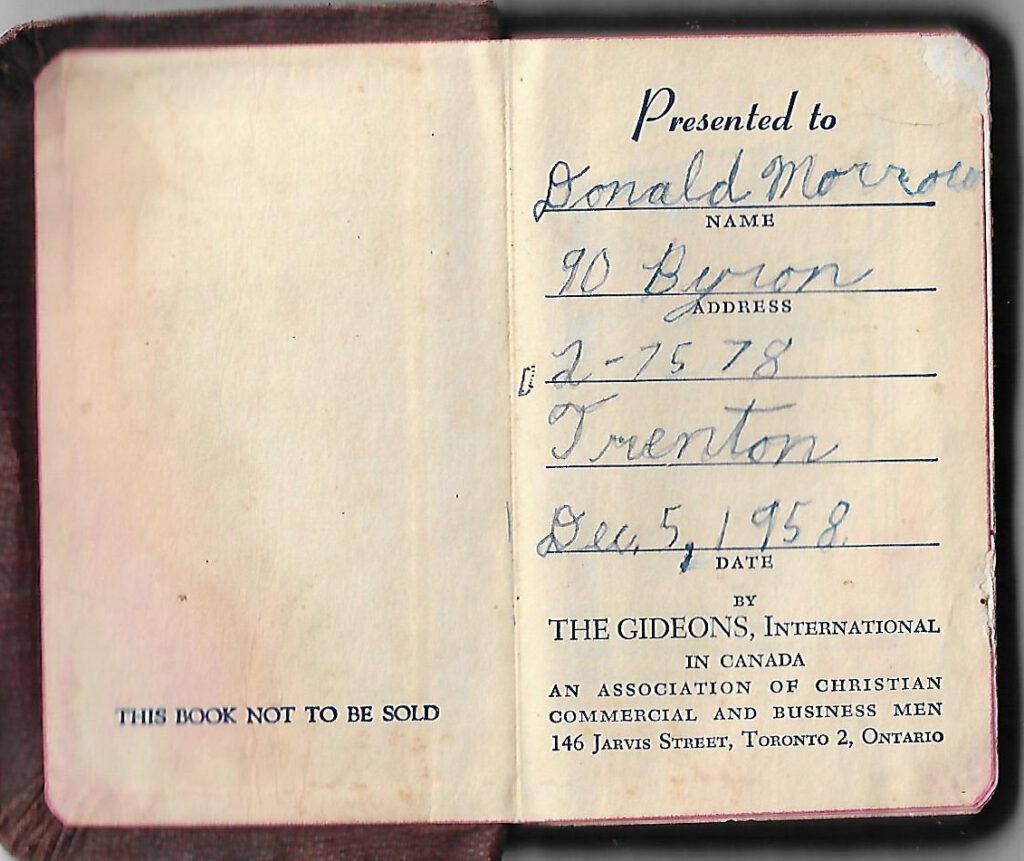 THIS BOOK NOT TO BE SOLD
Presented to
Donald Morrow
NAME
90 Byron
ADDRESS
2-75 78
Trenton
Dec. 5, 1958.
DATE
BY
THE GIDEONS, INTERNATIONAL
IN CANADA
AN ASSOCIATION OF CHRISTIAN
COMMERCIAL AND BUSINESS MEN
146 JARVIS STREET, TORONTO 2, ONTARIO